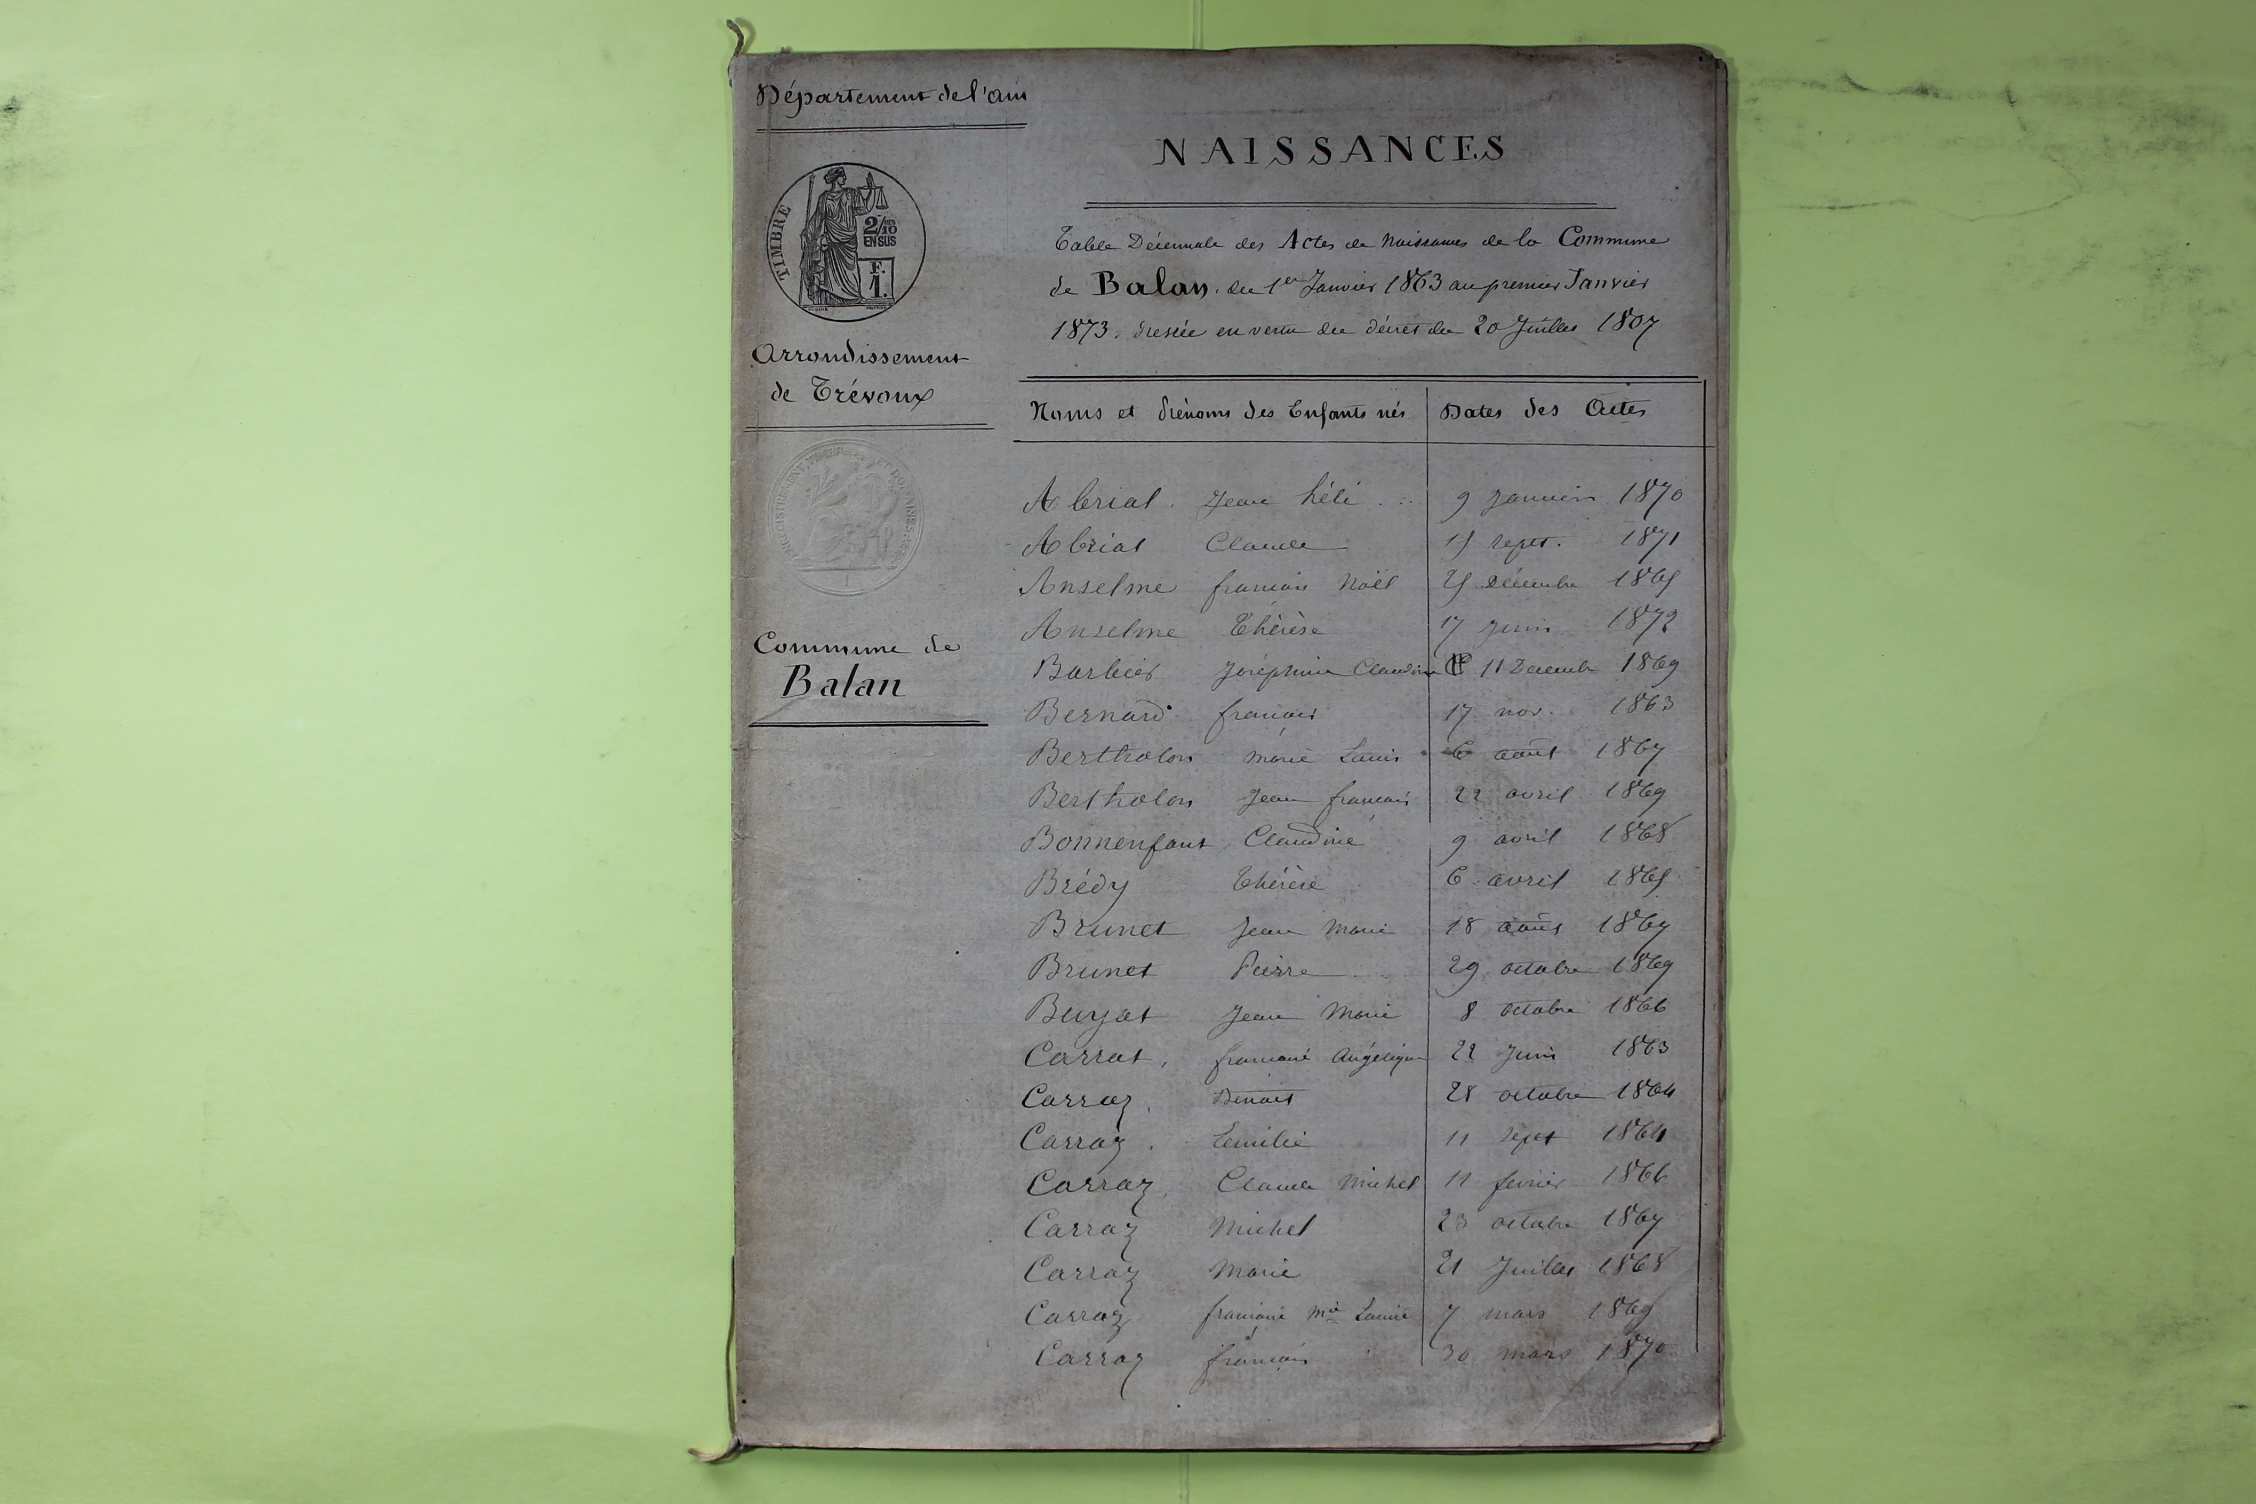 Département de l'ain
NAISSANCES
TIMBRE
2/10
EN SUS
F.
1.
Table Décennale des Actes de Naissances de la Commune
de Balan, du 1er Janvier 1863 au premier Janvier
1873, dressée en vertu du décret du 20 Juillet 1807
Arrondissement
de Trévoux
Commune de
Balan
Noms et Prénoms des Enfants nés Dates des Actes
Abrial Jean 9 janvier 1870
Abrial Claude 15 sept. 1871
Anselme françois Noël 25 décembre 1865
Anselme Thérèse 17 juin 1872
Barbier Joséphine Claudine 11 Décembre 1869
Bernard françois 17 nov. 1863
Bertholon Marie Louis 6 août 1867
Bertholon Jean françois 22 avril 1869
Bonnenfant Claudine 9 avril 1868
Brédy Thérèse 6 avril 1865
Brunet Jean Marie 18 août 1867
Brunet Pierre 29 octobre 1869
Buyat Jean Marie 8 octobre 1866
Carrat, françoise Angélique 22 Juin 1863
Carraz, Benoit 28 octobre 1864
Carraz. Emilie 11 sept 1864
Carraz, Claude Michel 11 février 1866
Carraz Michel 23 octobre 1867
Carraz Marie 21 Juillet 1868
Carraz françoise Mie Louise 7 mars 1869
Carraz françois 30 mars 1870